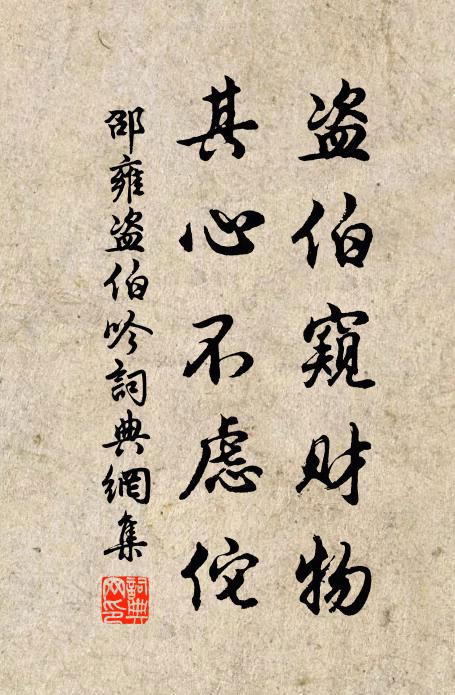 盗伯窺财物
其心不慮佗
邵雍盗伯吟詞典網集
詞典网印